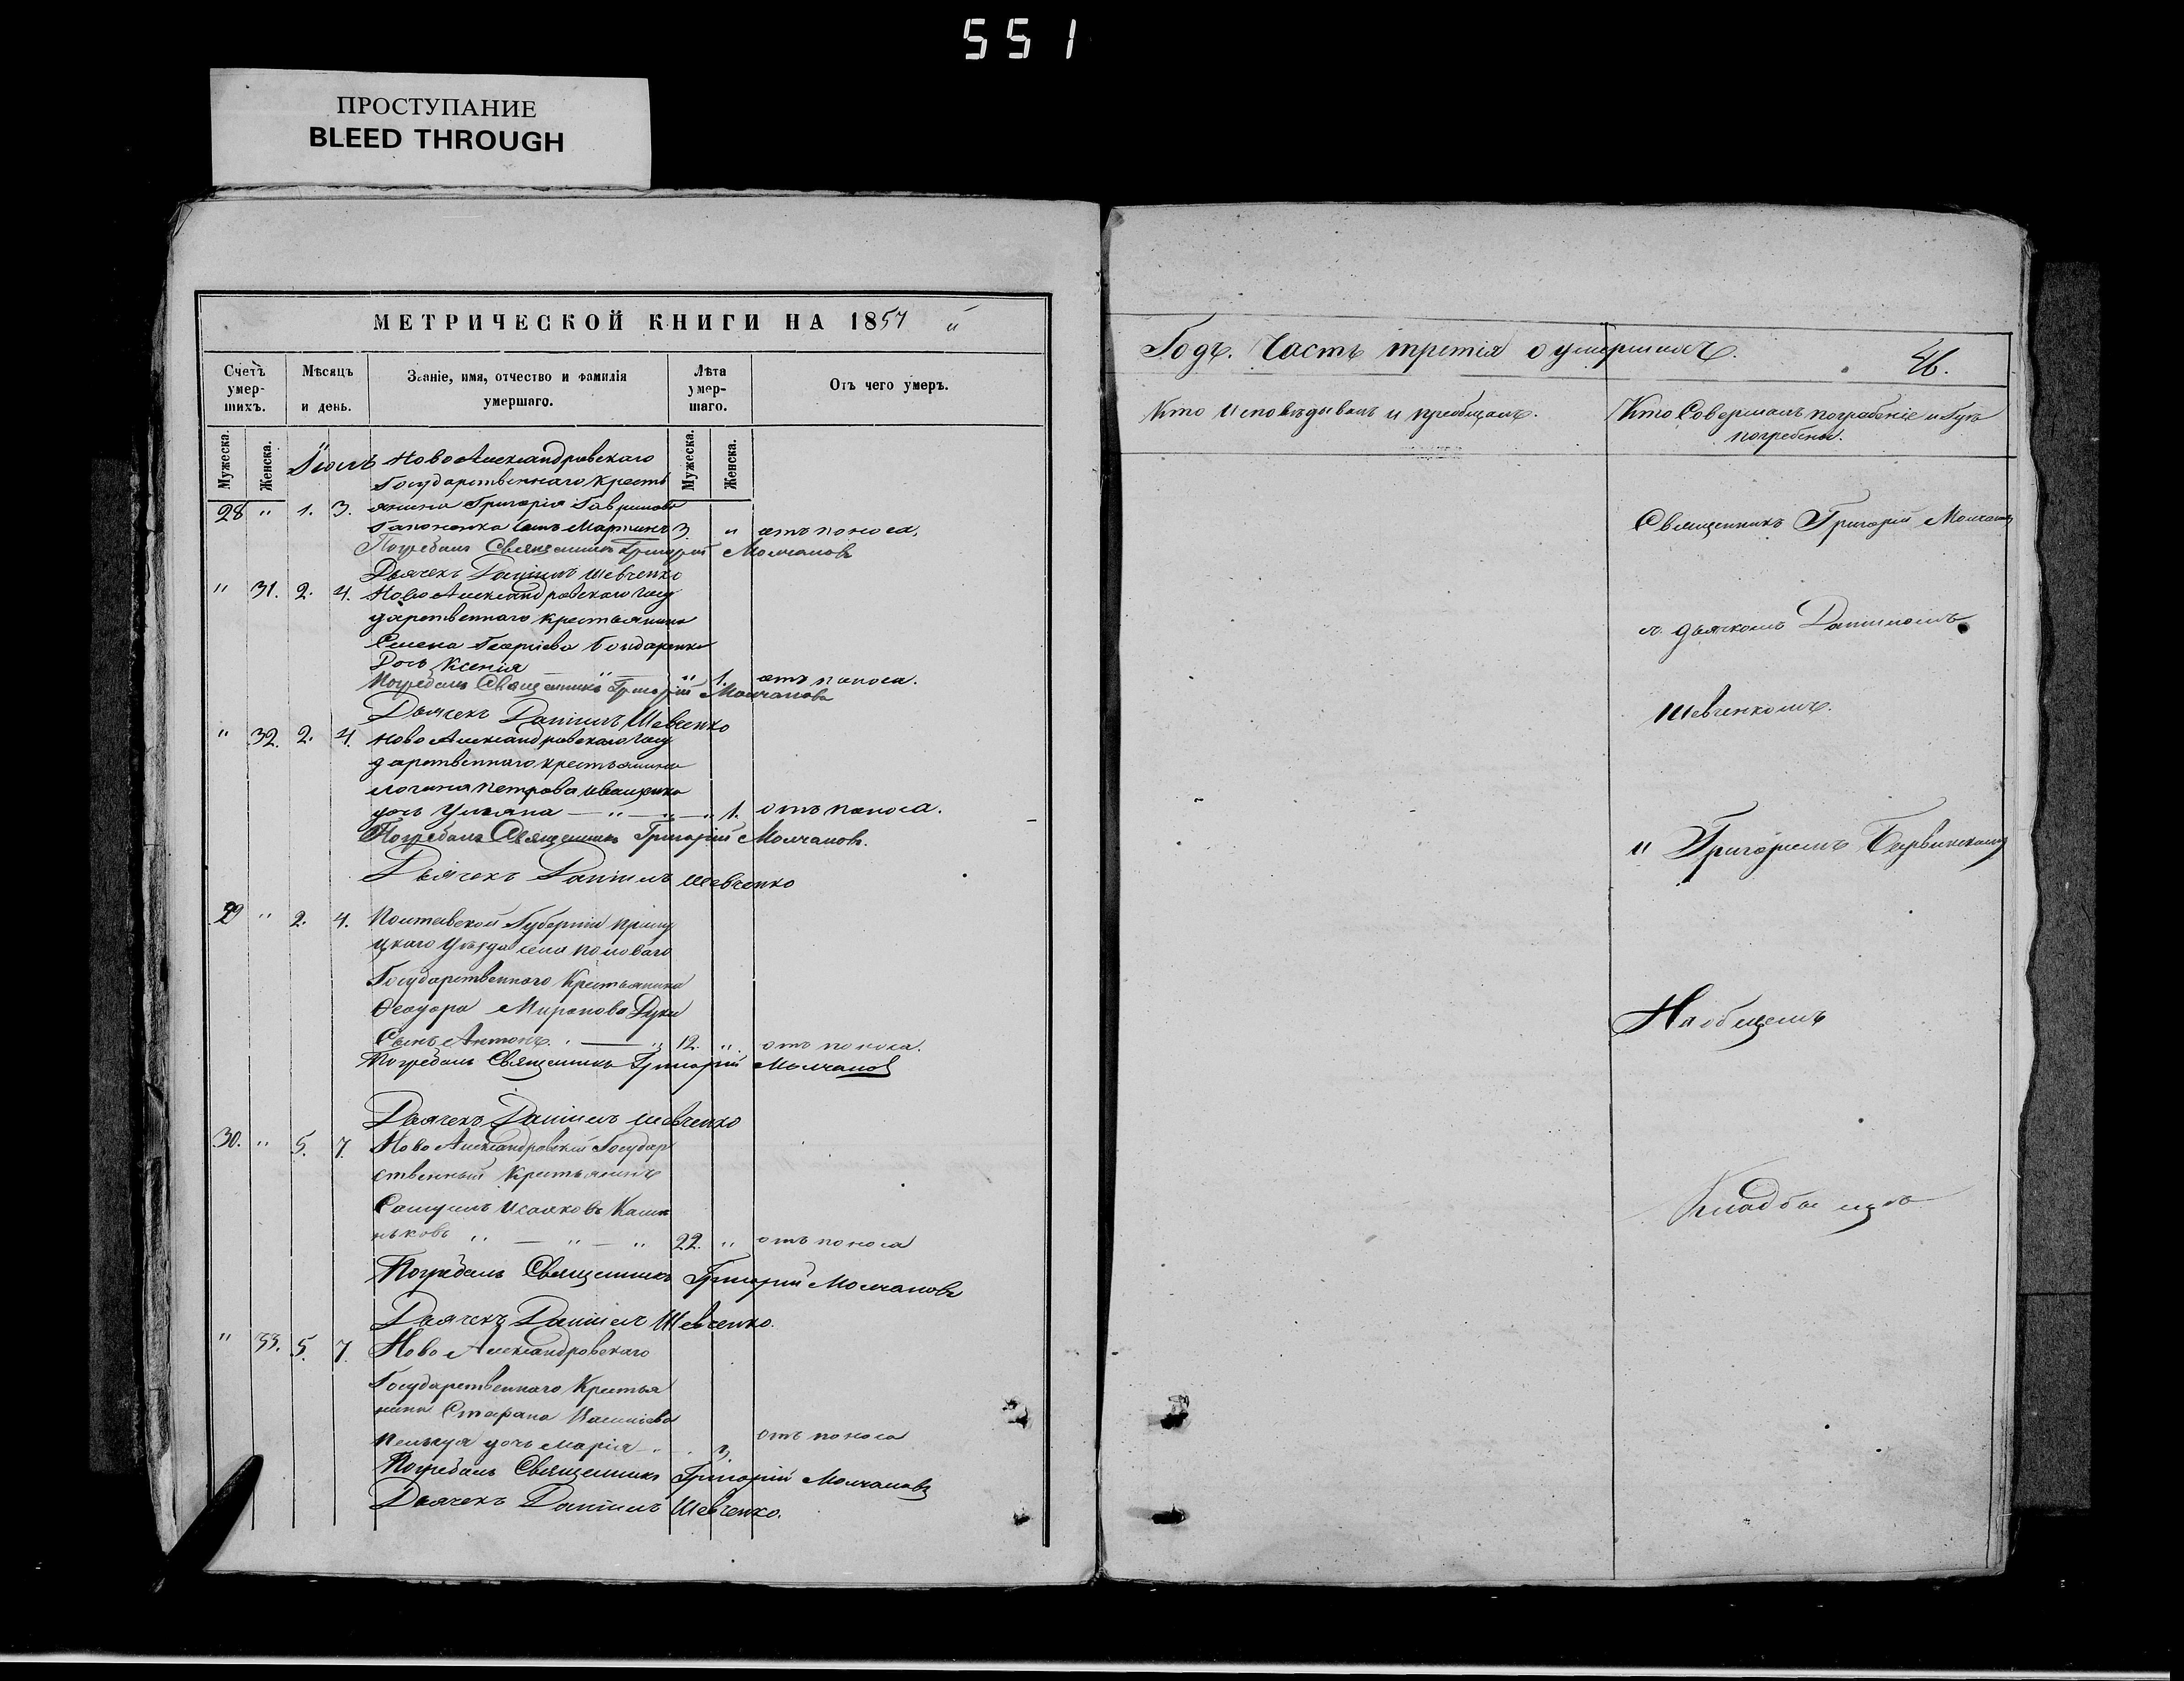 551
ПРОСТУПАНИЕ
BLEED THROUGH
МЕТРИЧЕСКОЙ КНИГИ НА 1857 й
Счетъ умерших. Мѣсяцъ и день. Званіе, имя, отчество и фамилія умершаго. Лѣта умершаго. Отъ чего умеръ.
Мужеска. Женска. Мужеска. Женска.
Іюль Ново Александровскаго
Государственнаго Кресть
28 " 1. 3. янина Григорія Гаврилова
Гапоненка сынъ Мартинъ 3. " отъ поноса.
Погребалъ Священникъ Григорій Молчановъ
Дьячекъ Даніилъ Шевченко
" 31. 2. 4. Ново Александровскаго Госу
дарственнаго крестьянина
Семена Георгіева Бондаренка
Дочь Ксенія " " 1. отъ поноса.
Погребалъ Священникъ Григорій Молчановъ
Дьячекъ Даніилъ Шевченко
" 32. 2. 4. Ново Александровскаго Госу
дарственнаго крестьянина
Логина Петрова Иващенка
дочь Ульяна — " — " — " 1. отъ поноса.
Погребалъ Священникъ Григорій Молчановъ.
Дьячекъ Даніилъ Шевченко
29 " 2. 4. Полтавской Губерніи Прилу
цкаго Уѣзда села Половаго
Государственнаго Крестьянина
Ѳеодора Миронова Дуки
Сынъ Антонъ. " — " 12. " отъ поноса.
Погребалъ Священникъ Григорій Молчановъ
Дьячекъ Даніилъ Шевченко
30. " 5. 7. Ново Александровскій Государ
ственный Крестьянинъ
Самуилъ Исааковъ
ньковъ " — " — " 22. " отъ поноса
Погребалъ Священникъ Григорій Молчановъ
Дьячекъ Даніилъ Шевченко.
" 33. 5. 7. Ново Александровскаго
Государственнаго Крестья
нина Стефана
дочь Марія отъ поноса
Погребалъ Священникъ Григорій Молчановъ
Дьячекъ Даніилъ Шевченко.
Годъ. Часть третія о умершихъ. 46.
Кто Исповѣдывалъ и пріобщалъ. Кто Совершалъ погребеніе и гдѣ
погребены.
Священникъ Григорій Молчановъ
съ дьячкомъ Даніиломъ
Шевченкомъ.
и Григоріемъ Барвинскимъ
На общемъ
Кладбищѣ